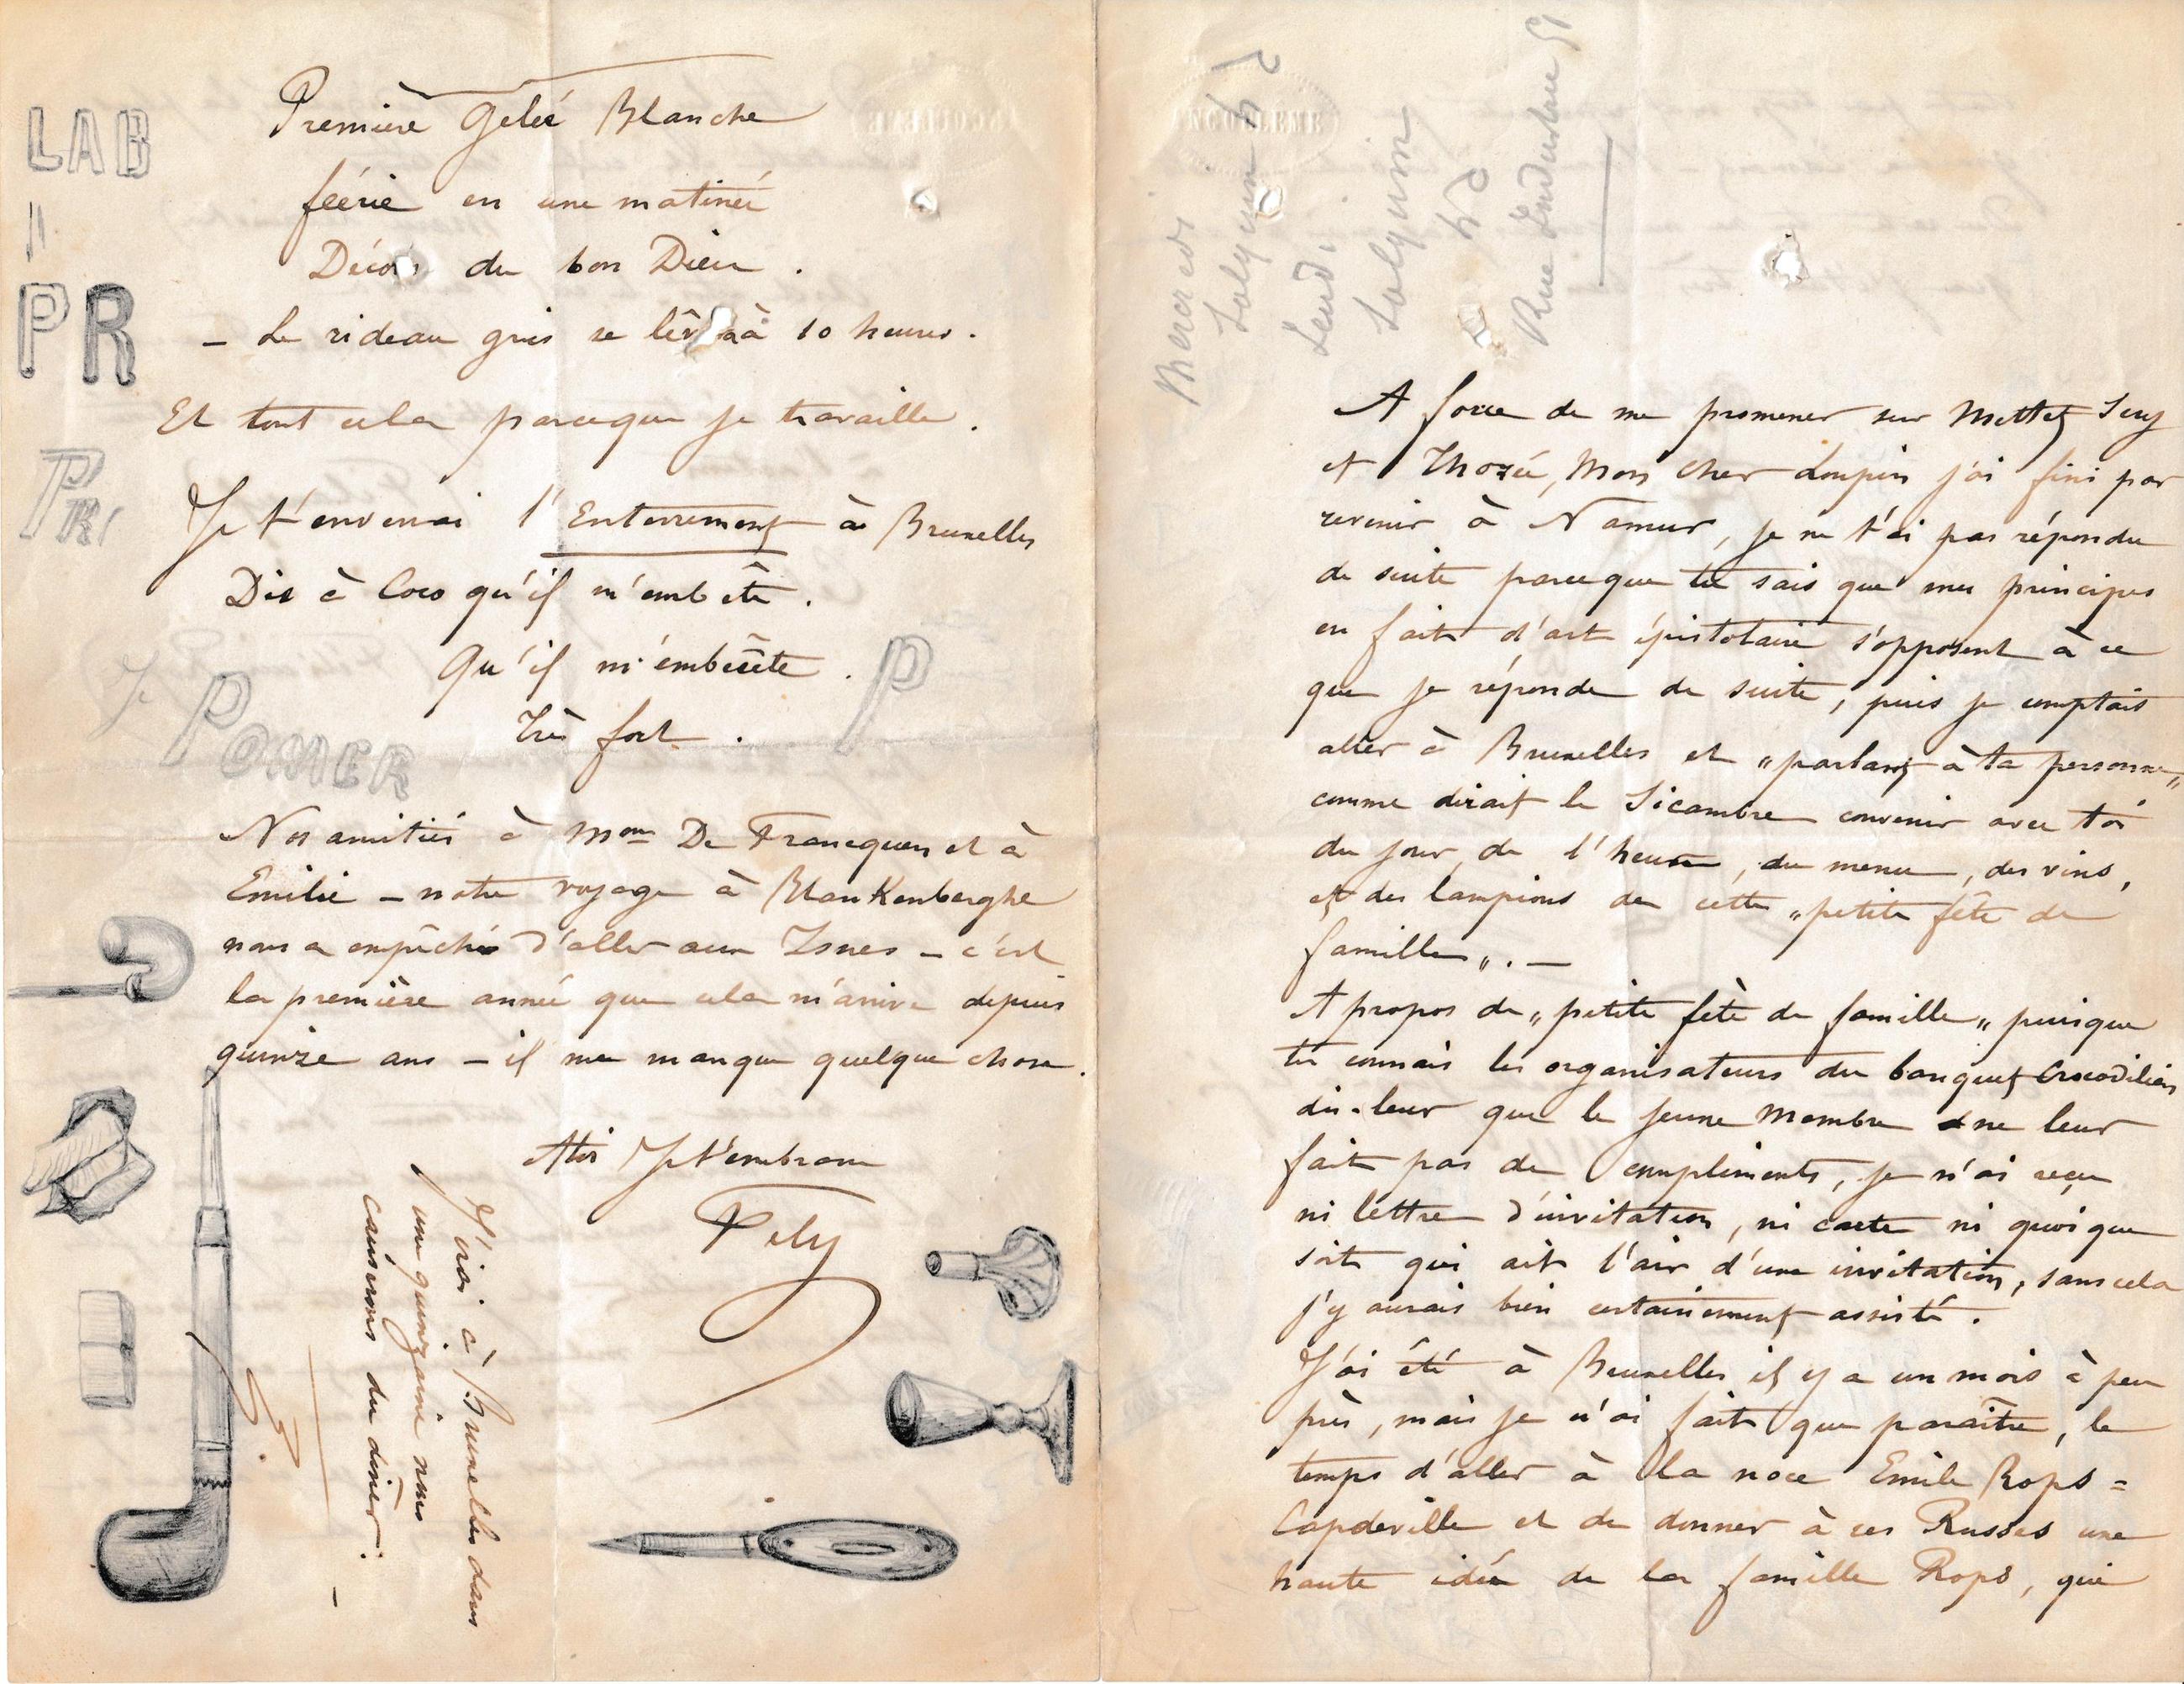 Première Gelée Blanche
féérie en une matinée
Décors du bon Dieu.
– Le rideau gris se lèvera à 10 heures.
Et tout cela parceque je travaille.
Je t'enverrai l'Enterrement à Bruxelles
Dis à Coco qu'il m'embête.
Qu'il m'embêête.
Très fort.
Nos amitiés à Mme De Francquen et à
Emilie – notre voyage à Blankenberghe
nous a empêchés d'aller aux Isnes – c'est
la première année que cela m'arrive depuis
quinze ans – il me manque quelque chose.
A toi Je t'embrasse
Fely
J'irai à Bruxelles dans
une quinzaine nous
causerons du dîner. –
LAB
PR
PRI
Je POMER
P
A force de me promener sur Mettet Scry
et Thozée, Mon cher Loupin j'ai fini par
revenir à Namur, je ne t'ai pas répondu
de suite parceque tu sais que mes principes
en fait d'art épistolaire s'opposent à ce
que je réponde de suite, puis je comptais
aller à Bruxelles et „parlant à ta personne„
comme dirait le Sicambre convenir avec toi
du jour, de l'heure, du menu, des vins,
et des lampions de cette „petite fête de
famille„. –
A propos de „petite fête de famille„ puisque
tu connais les organisateurs du banquet Crocodilien
dis-leur que le jeune Membre ne leur
fait pas de compliments, je n'ai reçu
ni lettre d'invitation, ni carte ni quoi que
soit qui ait l'air d'une invitation, sans cela
j'y aurais bien certainement assisté.
J'ai été à Bruxelles il y a un mois à peu
près, mais je n'ai fait que paraître, le
temps d'aller à la noce Emile Rops =
Capdeville et de donner à ces Russes une
haute idée de la famille Rops, qui
Mercredi
Lundi
Rue
ANGOULEME